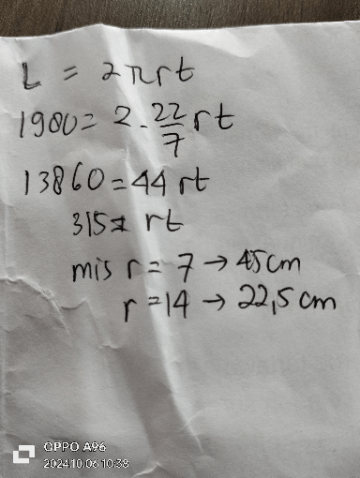 L = 2πrt
1980 = 2 · 22/7 rt
13860 = 44 rt
315 = rt
mis r = 7 → 45 cm
r = 14 → 22,5 cm
OPPO A96
2024.10.06 10:38